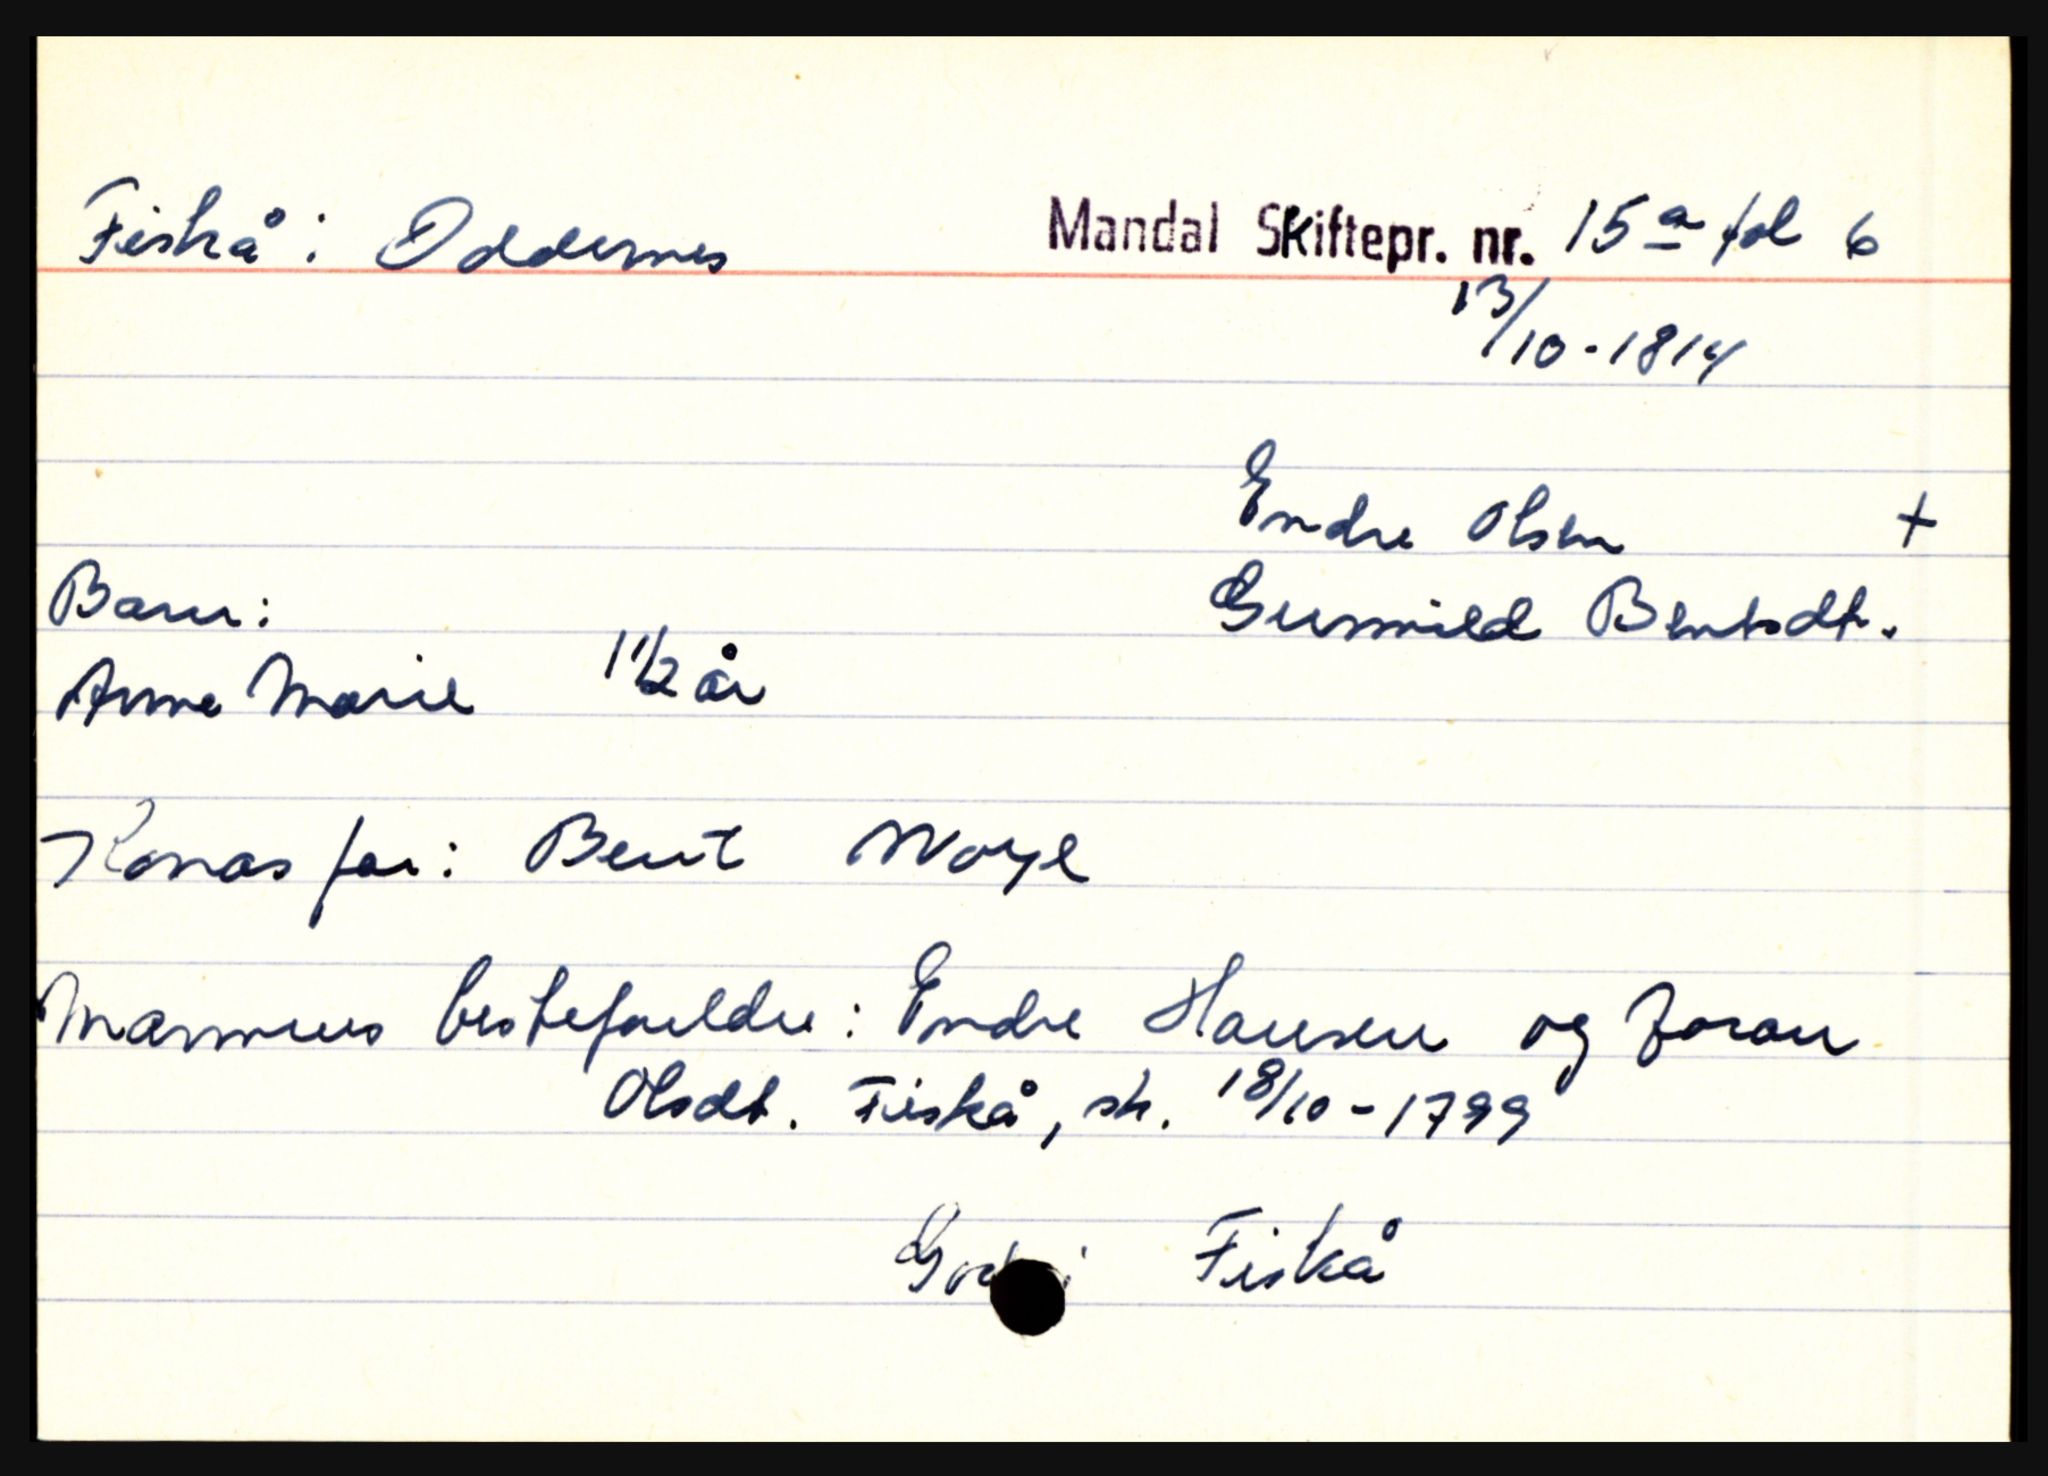 Fiskå i Oddernes Mandal Skiftepr. nr. 15a fol 6
13/10-1814
Endre Olsen +
Barn: Gunnild Bentsdt.
Anne Marie 1 1/2 år
Konas far: Bent Woye
Mannens besteforeldre: Endre Hansen og Joran
Olsdt. Fiskå, sk. 18/10-1799
i Fiskå